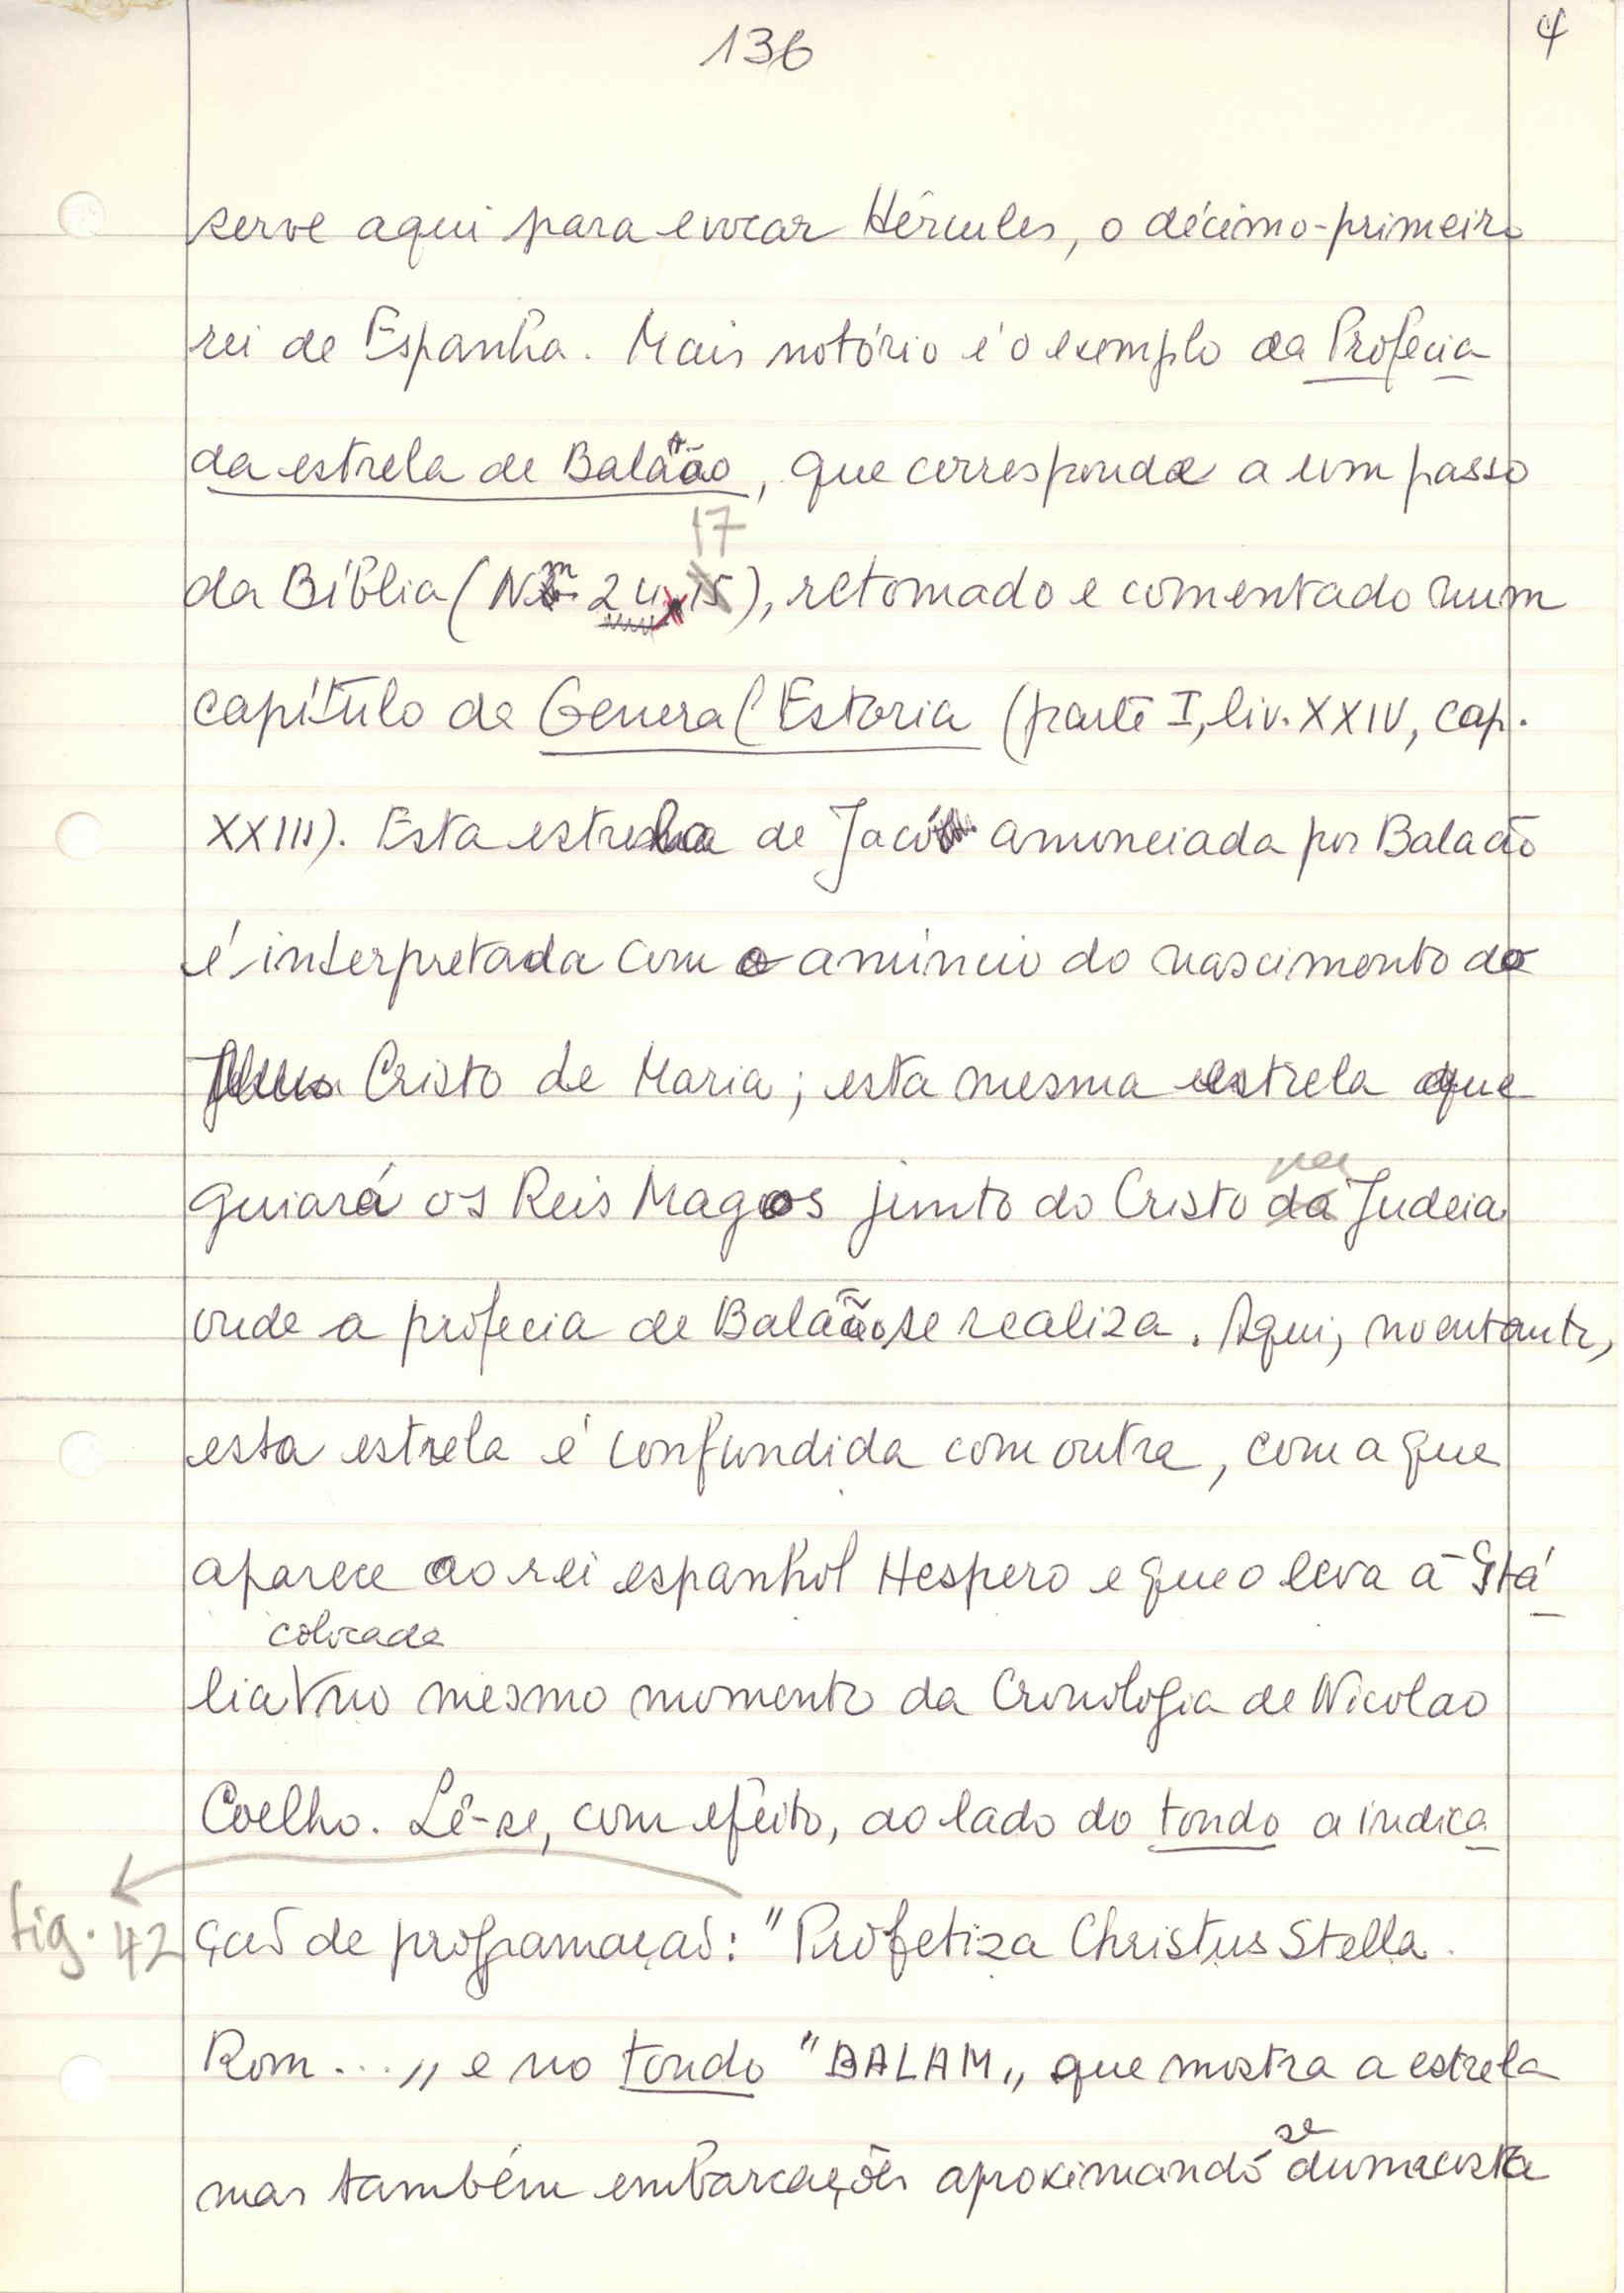 136
4
serve aqui para evocar Hércules, o décimo-primeiro
rei de Espanha. Mais notório é o exemplo da Profecia
da estrela de Balaão, que corresponde a um passo
17
da Bíblia (Nm 24, 15), retomado e comentado num
capítulo da General Estoria (parte I, liv. XXIV, cap.
XXIII). Esta estrela de Jacó anunciada por Balaão
é interpretada como anúncio do nascimento do
Cristo de Maria; esta mesma estrela que
na
guiará os Reis Magos junto do Cristo da Judeia
onde a profecia de Balaão se realiza. Aqui, no entanto,
esta estrela é confundida com outra, com a que
aparece ao rei espanhol Hespero e que o leva à Itá
colocada
lia no mesmo momento da Cronologia de Nicolao
Coelho. Lê-se, com efeito, ao lado do tondo a indica
fig. 42
ção de programação: "Profetiza Christus Stella.
Rom... „ e no tondo "BALAM„ que mostra a estrela
se
mas também embarcações aproximando duma costa